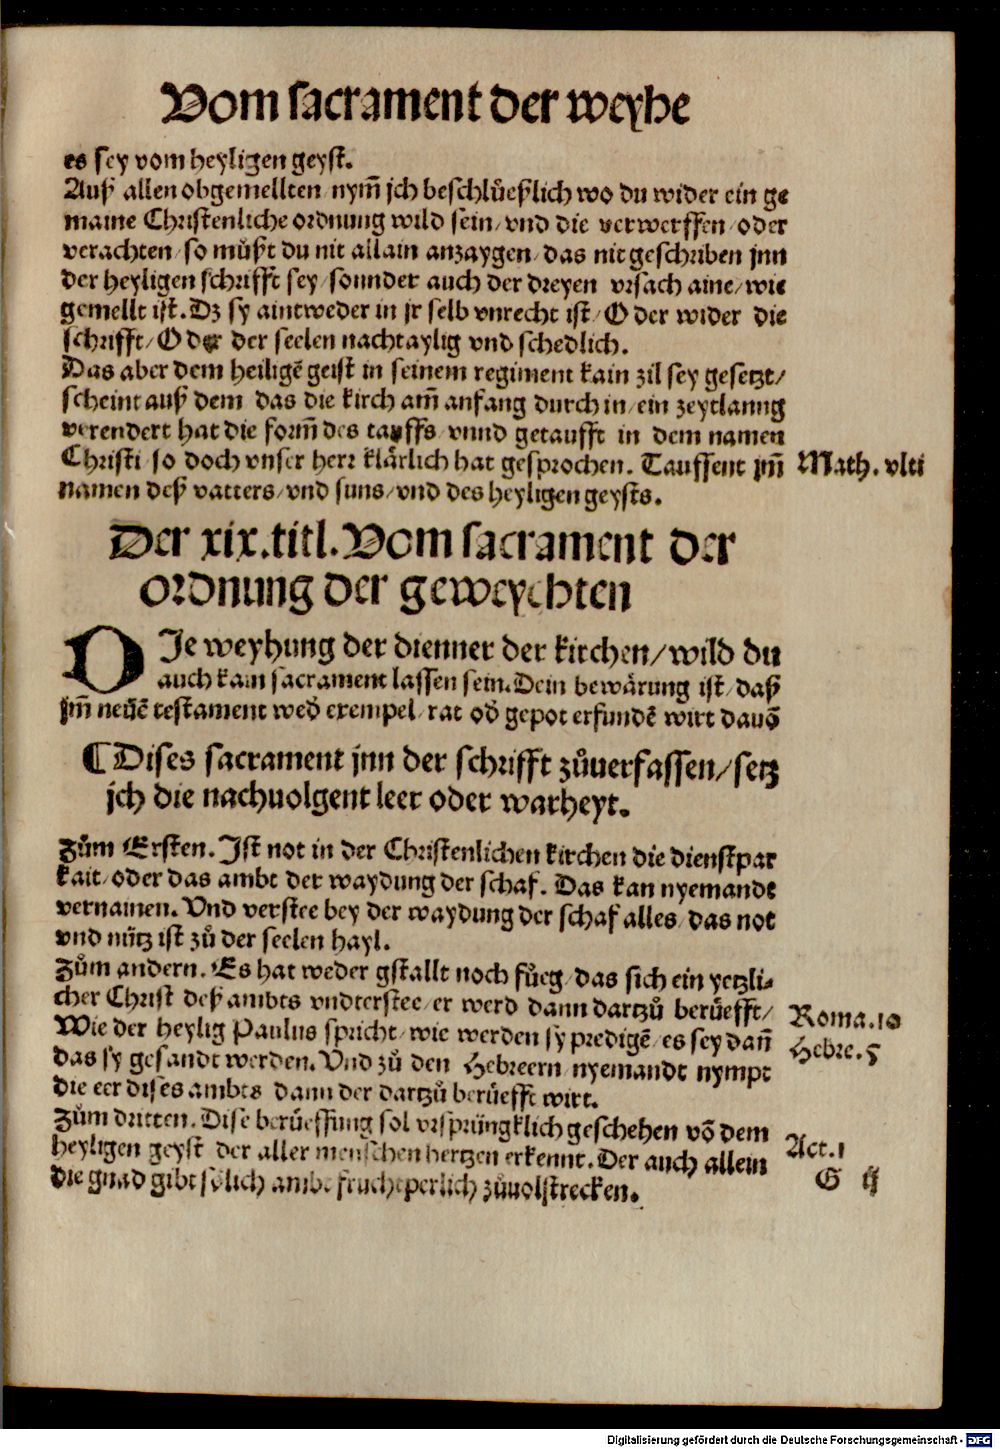 Vom sacrament der weyhe
es sey vom heyligen geyst.
Auß allen obgemellten nym̄ jch beschlüeßlich wo du wider ein ge
maine Christenliche ordnung wild sein/ vnd die verwerffen/ oder
verachten/ so můßt du nit allain anzaygen/ das nit geschriben jnn
der heyligen schrifft sey/ sonnder auch der dreyen vrsach aine/ wie
gemellt ist. Dz sy aintweder in jr selb vnrecht ist/ Oder wider die
schrifft/ Oder der seelen nachtaylig vnd schedlich.
Das aber dem heiligē geist in seinem regiment kain zil sey gesetzt/
scheint auß dem das die kirch am̄ anfang durch in/ ein zeytlanng
verendert hat die form̄ des tauffs/ vnnd getaufft in dem namen
Christi so doch vnser herr klärlich hat gesprochen. Tauffent jm̄
Math. vlti
namen deß vatters/ vnd suns/ vnd des heyligen geysts.
Der xix. titl. Vom sacrament der
ordnung der geweychten
DJe weyhung der dienner der kirchen/ wild du
auch kain sacrament lassen sein. Dein bewärung ist/ daß
jm̄ neüē testament wed̄ exempel/ rat od̄ gepot erfundē wirt dauō
¶ Dises sacrament jnn der schrifft zůuerfassen/ setz
jch die nachuolgent leer oder warheyt.
Zům Ersten. Jst not in der Christenlichen kirchen die dienstpar
kait/ oder das ambt der waydung der schaf. Das kan nyemandt
vernainen. Vnd verstee bey der waydung der schaf alles/ das not
vnd nütz ist zů der seelen hayl.
Zům andern. Es hat weder gstallt noch fůeg/ das sich ein yetzli⸗
cher Christ deß ambts vndterstee/ er werd dann dartzů berüefft/
Wie der heylig Paulus spricht/ wie werden sy predigē/ es sey dan̄
Roma. 10
das sy gesandt werden. Vnd zů den Hebreern nyemandt nympt
Hebre. 5
die eer dises ambts dann der dartzů berüefft wirt.
Zům dritten. Dise berüeffung sol vrsprüngklich geschehen vō dem
heyligen geyst der aller menschen hertzen erkennt. Der auch allein
Act. 1
die gnad gibt sölich ambt fruchtperlich zůuolstrecken.
G ij
Digitalisierung gefördert durch die Deutsche Forschungsgemeinschaft - DFG